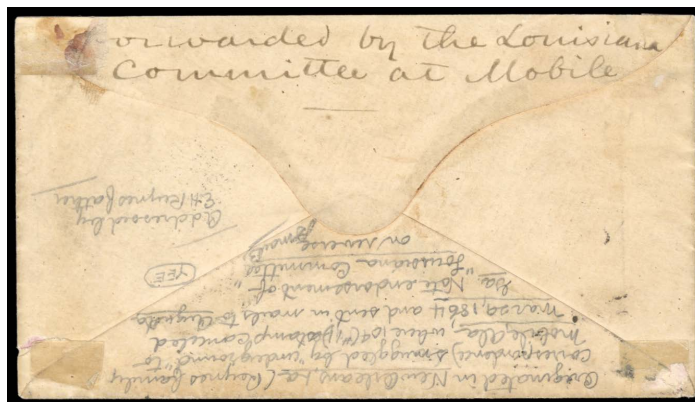 Forwarded by the Louisiana
Committee at Mobile
Addressed by
E H Reynes father
Originated in New Orleans, La (Reynes family
correspondence) smuggled by "underground" to
Mobile, Ala, where 10¢ stamp canceled
Mar 29, 1864 and sent in mails to Augusta
Ga. Note endorsement of
"Louisiana Committee"
on reverse
YEE